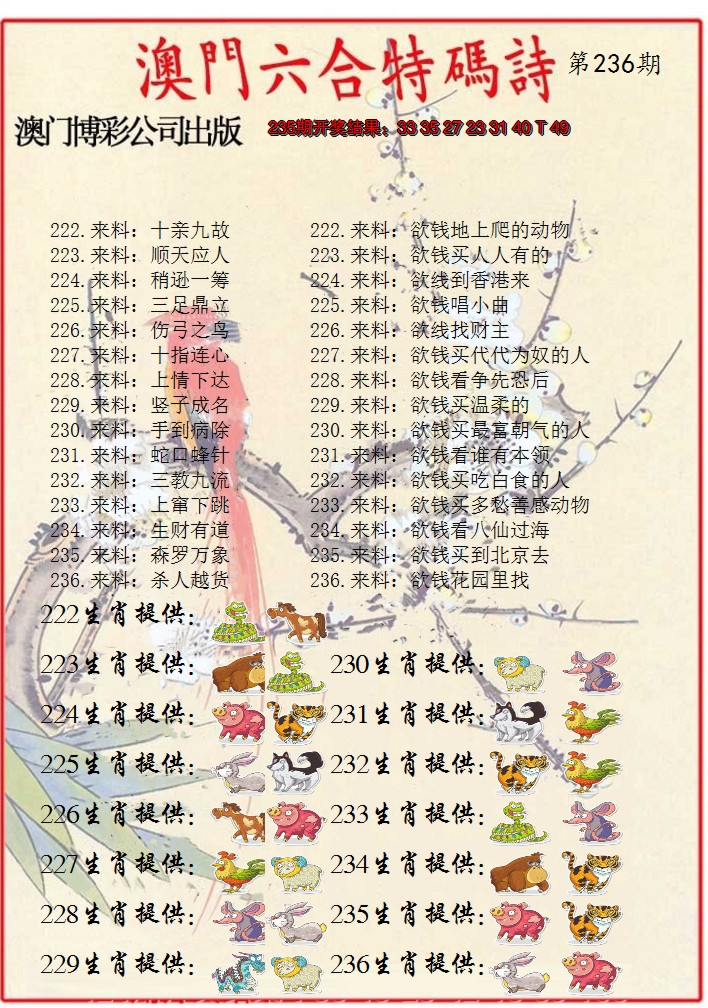 澳門六合特碼詩 第236期
澳门博彩公司出版 235期开奖结果：33 35 27 23 31 40 T 49
222.来料：十亲九故 222.来料：欲钱地上爬的动物
223.来料：顺天应人 223.来料：欲钱买人人有的
224.来料：稍逊一筹 224.来料：欲线到香港来
225.来料：三足鼎立 225.来料：欲钱唱小曲
226.来料：伤弓之鸟 226.来料：欲线找财主
227.来料：十指连心 227.来料：欲钱买代代为奴的人
228.来料：上情下达 228.来料：欲钱看争先恐后
229.来料：竖子成名 229.来料：欲钱买温柔的
230.来料：手到病除 230.来料：欲钱买最富朝气的人
231.来料：蛇口蜂针 231.来料：欲钱看谁有本领
232.来料：三教九流 232.来料：欲钱买吃白食的人
233.来料：上窜下跳 233.来料：欲钱买多愁善感动物
234.来料：生财有道 234.来料：欲钱看八仙过海
235.来料：森罗万象 235.来料：欲钱买到北京去
236.来料：杀人越货 236.来料：欲钱花园里找
222生肖提供：
223生肖提供： 230生肖提供：
224生肖提供： 231生肖提供：
225生肖提供： 232生肖提供：
226生肖提供： 233生肖提供：
227生肖提供： 234生肖提供：
228生肖提供： 235生肖提供：
229生肖提供： 236生肖提供：